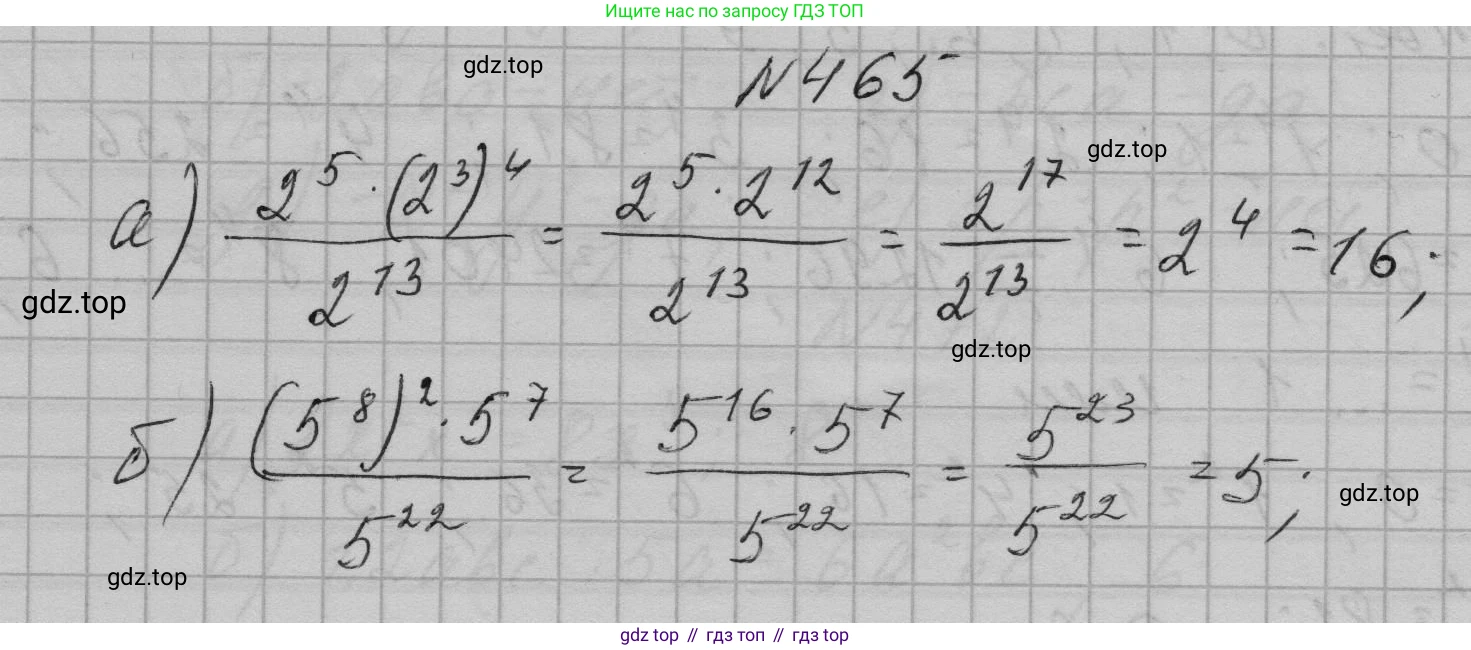 Ищите нас по запросу ГДЗ ТОП
gdz.top
N465
gdz.top
а) (2^5 · (2^3)^4) / 2^13 = (2^5 · 2^12) / 2^13 = 2^17 / 2^13 = 2^4 = 16;
gdz.top
gdz.top
б) ((5^8)^2 · 5^7) / 5^22 = (5^16 · 5^7) / 5^22 = 5^23 / 5^22 = 5;
gdz.top
gdz.top
gdz top // гдз топ // гдз top